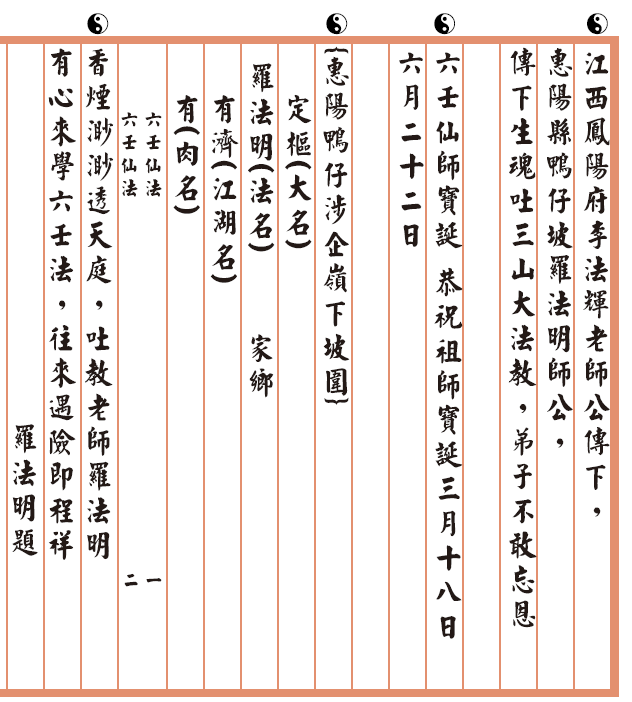 江西鳳陽府李法輝老師公傳下，
惠陽縣鴨仔坡羅法明師公，
傳下生魂吐三山大法教，弟子不敢忘恩
六壬仙師寶誕 恭祝祖師寶誕三月十八日
六月二十二日
{惠陽鴨仔涉企嶺下坡圍}
定樞(大名)
羅法明(法名) 家鄉
有濟(江湖名)
有(肉名)
六壬仙法 一
六壬仙法 二
香煙渺渺透天庭，吐教老師羅法明
有心來學六壬法，往來遇險即程祥
羅法明題